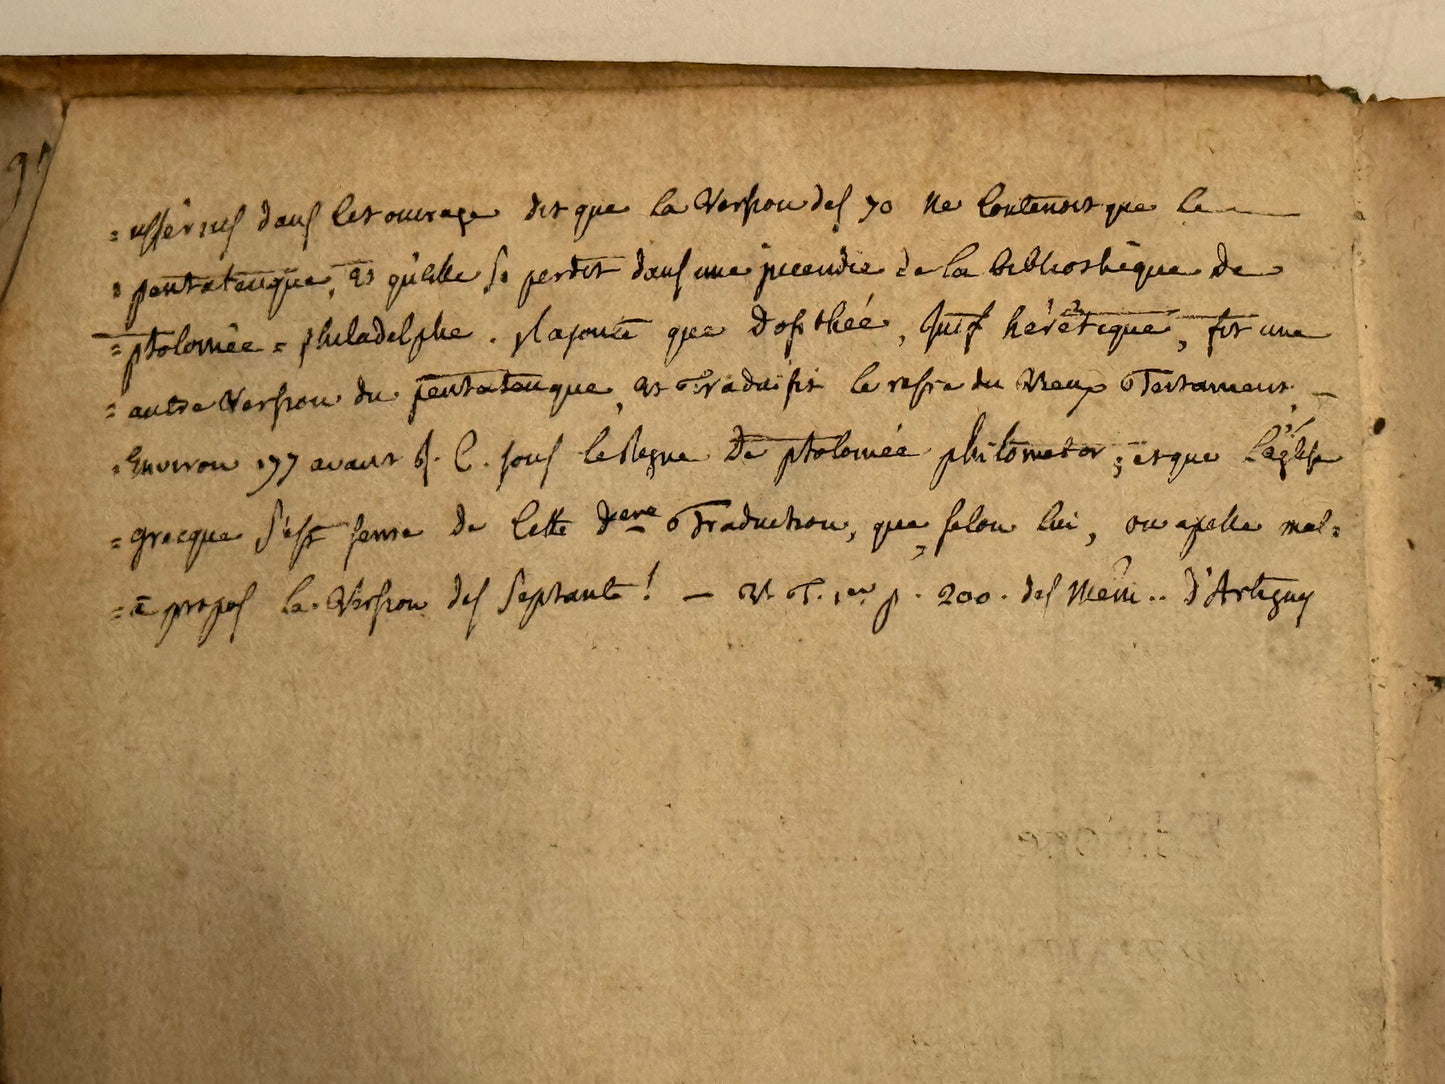 = ussérius dans cet ouvrage dit que la Version des 70 ne Contenoit que le
= pentateuque, et qu'elle se perdit dans une jncendie de la bibliothêque de
= ptolomée = philadelphe. jl ajoute que Dosithée, Juif hérétique, fit une
= autre Version du pentateuque, et Traduisit le reste du Vieux Testament, –
= Environ 177 avant J. C. sous le Regne De ptolomée philometor; et que L'églse
= grecque s'est servie de Cette Dere Traduction, que, selon lui, on apelle mal=
= à propos la Version des Septante! – V. T. 1er p. 200. des Mém.. D'Artigny